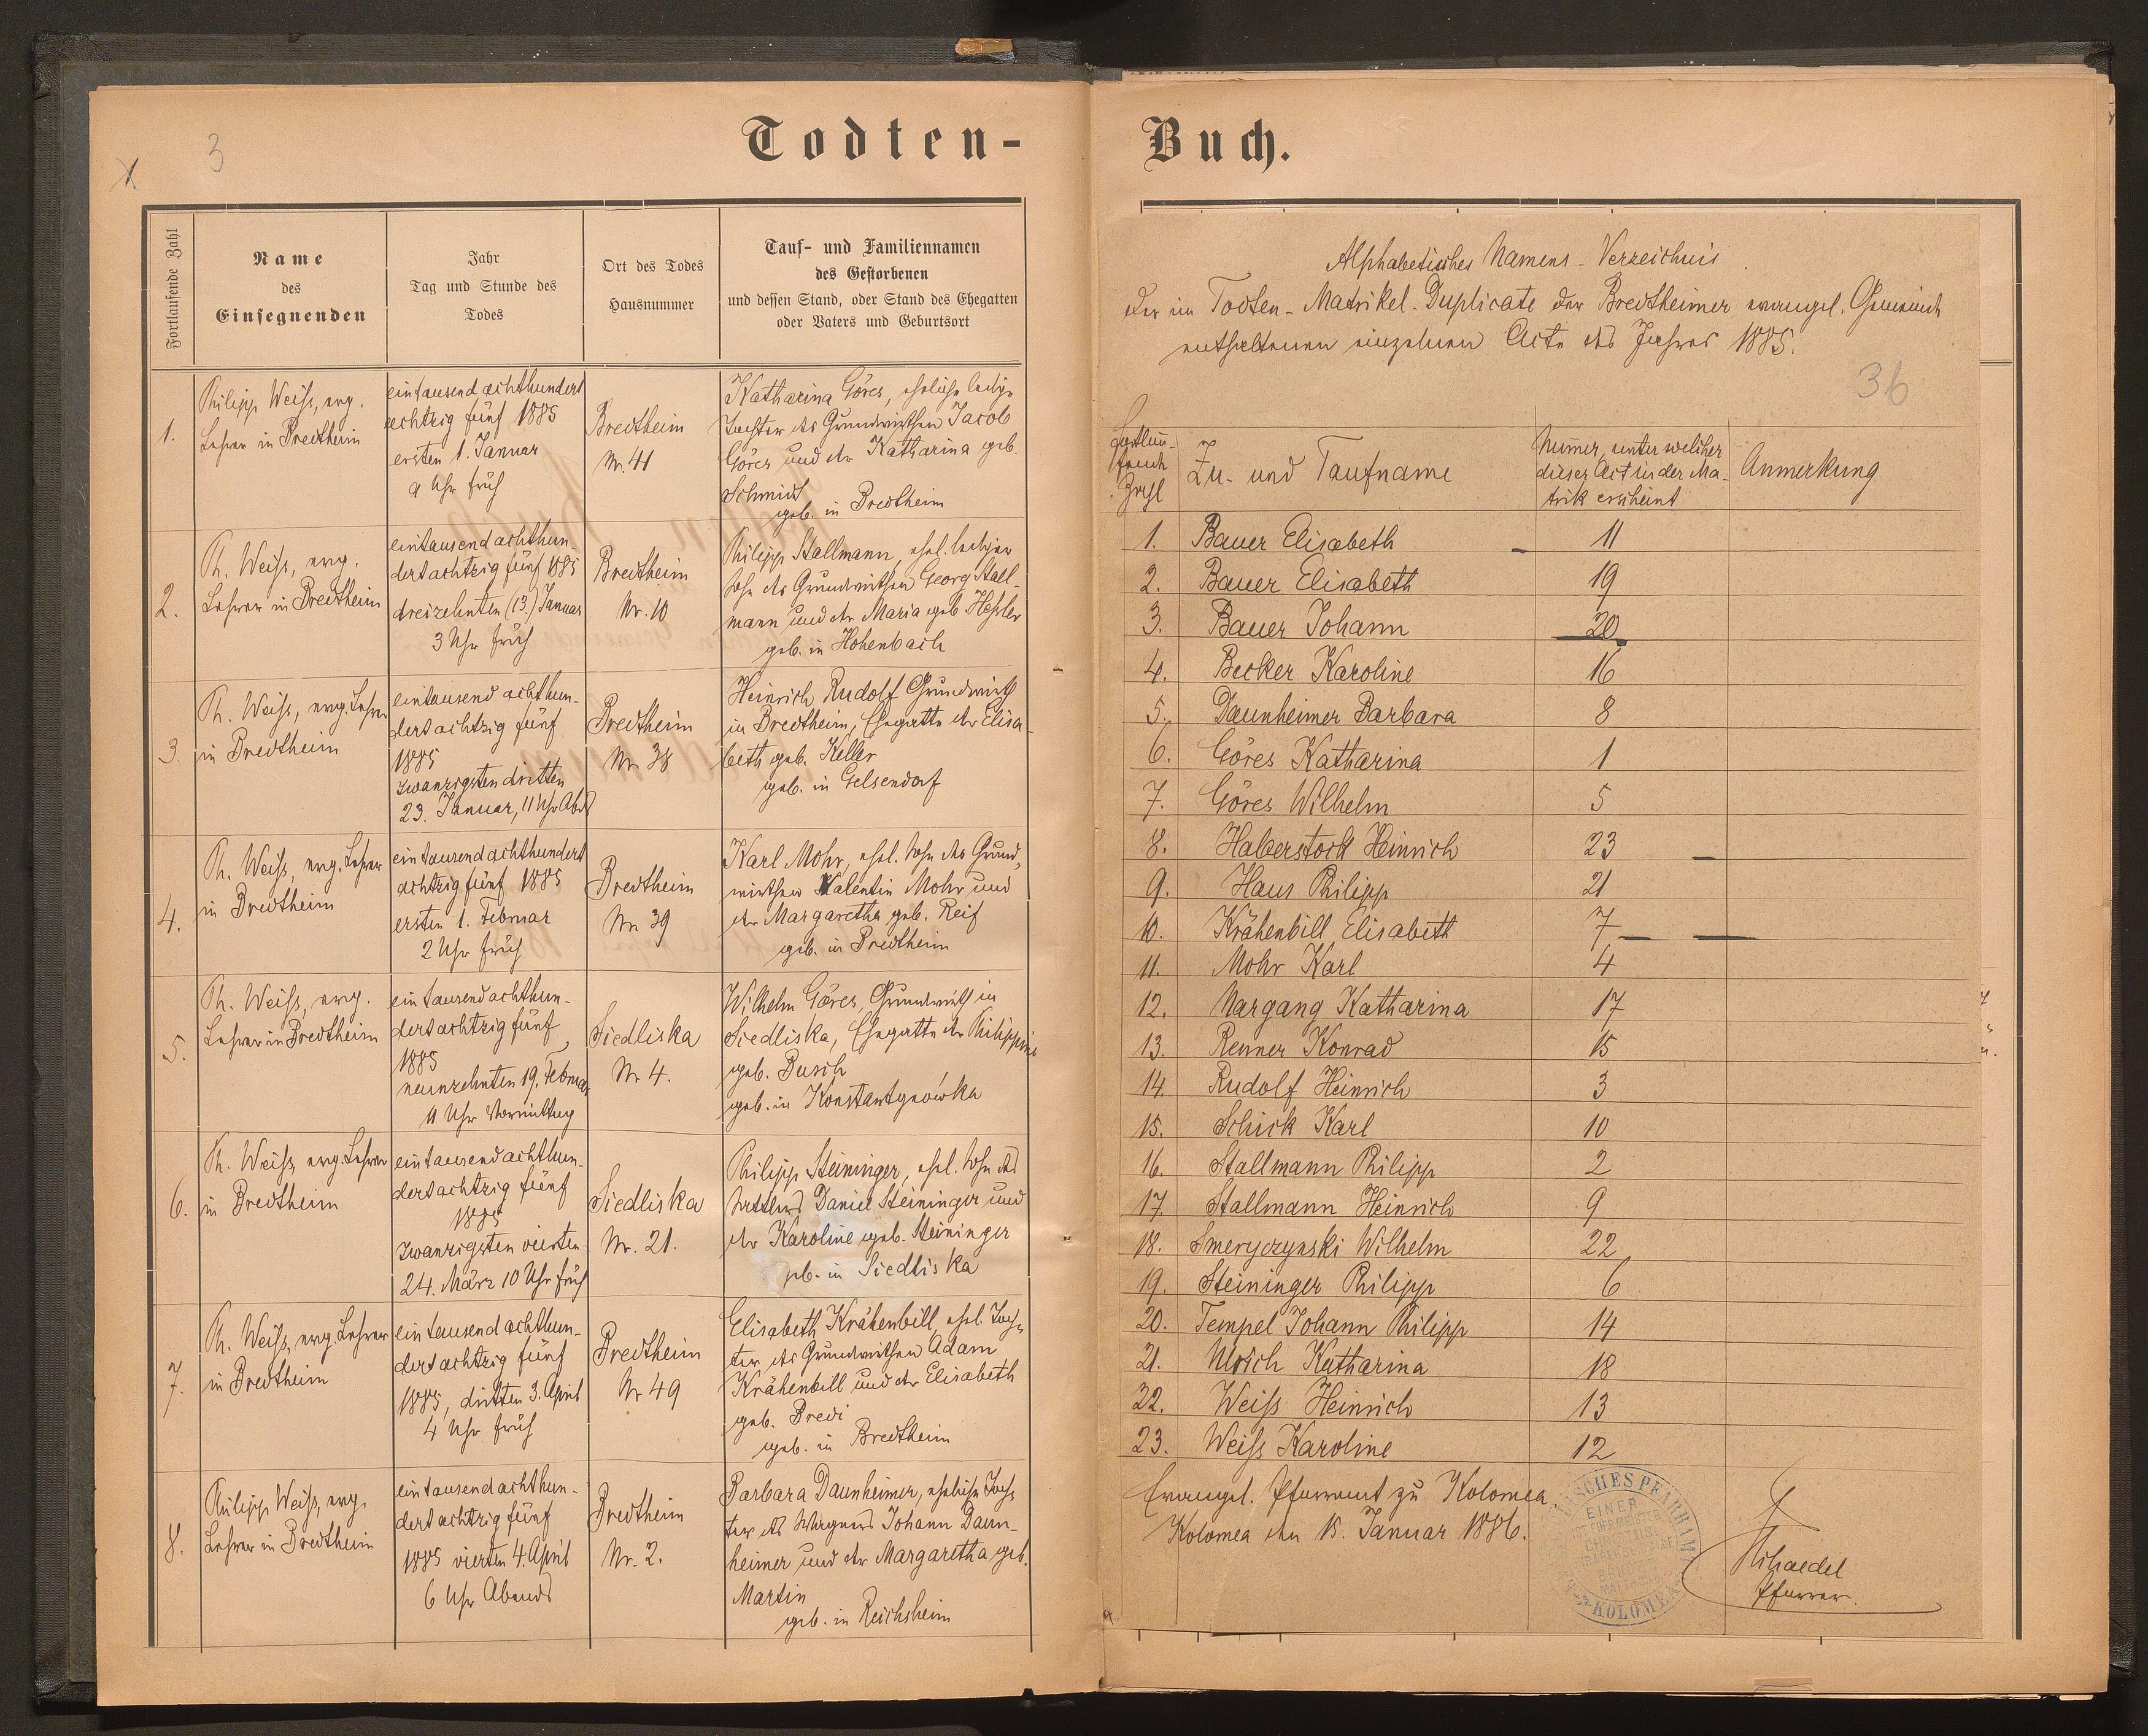 3
X
Todten-
Fortlaufende Zahl
Name
des
Einsegnenden
Jahr
Tag und Stunde des
Todes
Ort des Todes
Hausnummer
Tauf- und Familiennamen
des Gestorbenen
und dessen Stand, oder Stand des Ehegatten
oder Vaters und Geburtsort
1.
Philipp Weiß, evg.
Lehrer in Bredtheim
eintausend achthundert
achtzig fünf 1885
ersten 1. Januar
9 Uhr früh
Bredtheim
Nr. 41
Katharina Göres, eheliche ledige
Tochter des Grundwirthen Jacob
Göres und der Katharina geb.
Schmidt
geb. in Bredtheim
2.
Ph. Weiß, evg.
Lehrer in Bredtheim
eintausend achthun-
dert achtzig fünf 1885
dreizehnten (13.) Januar
3 Uhr früh
Bredtheim
Nr. 10
Philipp Stallmann, ehel. lediger
Sohn des Grundwirthen Georg Stall-
mann und der Maria geb. Heßler
geb. in Hohenbach
3.
Ph. Weiß, evg. Lehrer
in Bredtheim
eintausend achthun-
dert achtzig fünf
1885
zwanzigsten dritten
23. Januar, 11 Uhr Abd
Bredtheim
Nr. 38
Heinrich Rudolf Grundwirth
in Bredtheim, Ehegatte der Elisa-
beth geb. Keller
geb. in Gelsendorf
4.
Ph. Weiß, evg. Lehrer
in Bredtheim
eintausend achthundert
achtzig fünf 1885
ersten 1. Februar
2 Uhr früh
Bredtheim
Nr. 39
Karl Mohr, ehel. Sohn des Grund-
wirthen Valentin Mohr und
der Margaretha geb. Reif
geb. in Bredtheim
5.
Ph. Weiß, evg.
Lehrer in Bredtheim
eintausend achthun-
dert achtzig fünf
1885
neunzehnten 19. Februar
9 Uhr Vormittag
Siedliska
Nr. 4.
Wilhelm Göres, Grundwirth in
Siedliska, Ehegatte der Philippine
geb. Busch
geb. in Konstantynówka
6.
Ph. Weiß, evg. Lehrer
in Bredtheim
eintausend achthun-
dert achtzig fünf
1885
zwanzigsten vierten
24. März 10 Uhr früh
Siedliska
Nr. 21.
Philipp Steininger, ehel. Sohn des
Daniel Steininger und
der Karoline geb. Steininger
geb. in Siedliska
7.
Ph. Weiß, evg. Lehrer
in Bredtheim
eintausend achthun-
dert achtzig fünf
1885, dritten 3. April
4 Uhr früh
Bredtheim
Nr 49
Elisabeth Krähenbill, ehel. Toch-
ter des Grundwirthen Adam
Krähenbill und der Elisabeth
geb. Bredi
geb. in Bredtheim
8.
Philipp Weiß, evg.
Lehrer in Bredtheim
eintausend achthun-
dert achtzig fünf
1885 vierten 4. April
6 Uhr Abends
Bredtheim
Nr. 2.
Barbara Daunheimer, eheliche Toch-
ter des Wagners Johann Daun-
heimer und der Margaretha geb.
Martin
geb. in Reichsheim
Buch.
Alphabetisches Namens-Verzeichnis
der im Todten-Matrikel-Duplicate der Bredtheimer evangel. Gemeinde
enthaltenen einzelnen Acte des Jahres 1885.
36
Fortlau-
fende
Zahl
Zu- und Taufname
Numer, unter welcher
dieser Act in der Ma-
trik erscheint
Anmerkung
1. Bauer Elisabeth 11
2. Bauer Elisabeth 19
3. Bauer Johann 20
4. Becker Karoline 16
5. Daunheimer Barbara 8
6. Göres Katharina 1
7. Göres Wilhelm 5
8. Haberstock Heinrich 23
9. Haus Philipp 21
10. Krähenbill Elisabeth 7
11. Mohr Karl 4
12. Nargang Katharina 17
13. Renner Konrad 15
14. Rudolf Heinrich 3
15. Schick Karl 10
16. Stallmann Philipp 2
17. Stallmann Heinrich 9
18. Smeryczynski Wilhelm 22
19. Steininger Philipp 6
20. Tempel Johann Philipp 14
21. Ulrich Katharina 18
22. Weiß Heinrich 13
23. Weiß Karoline 12
Evangel. Pfarramt zu Kolomea.
Kolomea den 15. Januar 1886.
EINER
IST EUER MEISTER
CHRISTUS
BRÜDER
MATTH.
KOLOMEA
Pfarrer.